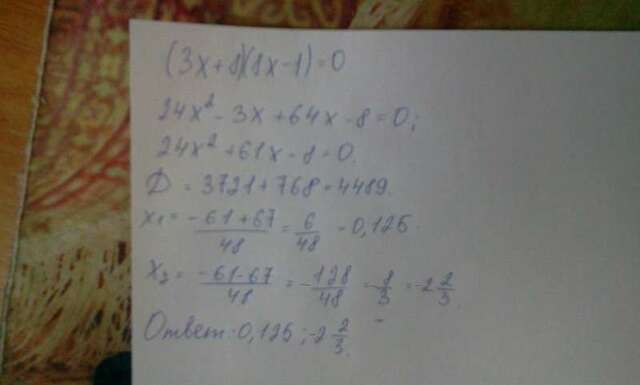 (3x+8)(8x-1)=0
24x² - 3x + 64x - 8 = 0;
24x² + 61x - 8 = 0.
D = 3721 + 768 = 4489.
x₁ = -61+67/48 = 6/48 = 0,125.
x₂ = -61-67/48 = -128/48 = -8/3 = -2 2/3.
Ответ: 0,125; -2 2/3.